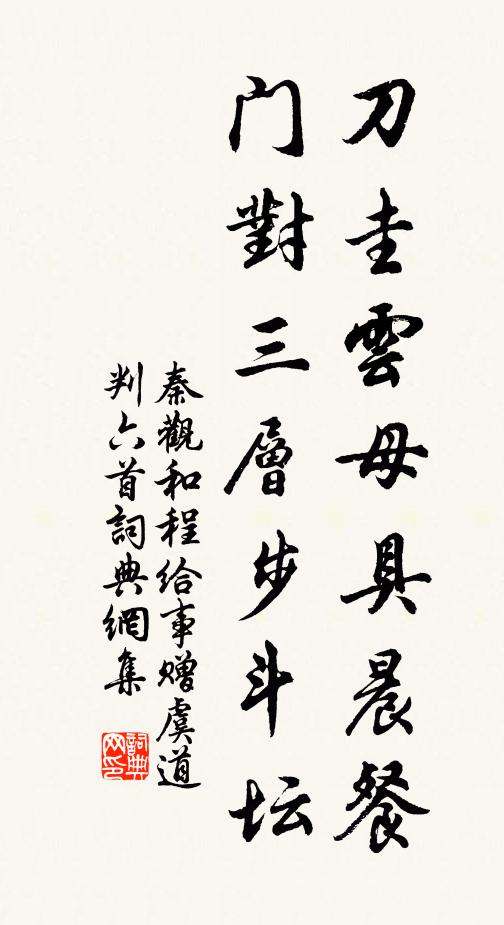 刀圭雲母具晨餐
门對三層步斗坛
秦觀和程给事赠虞道
判六首詞典網集
詞典
网印